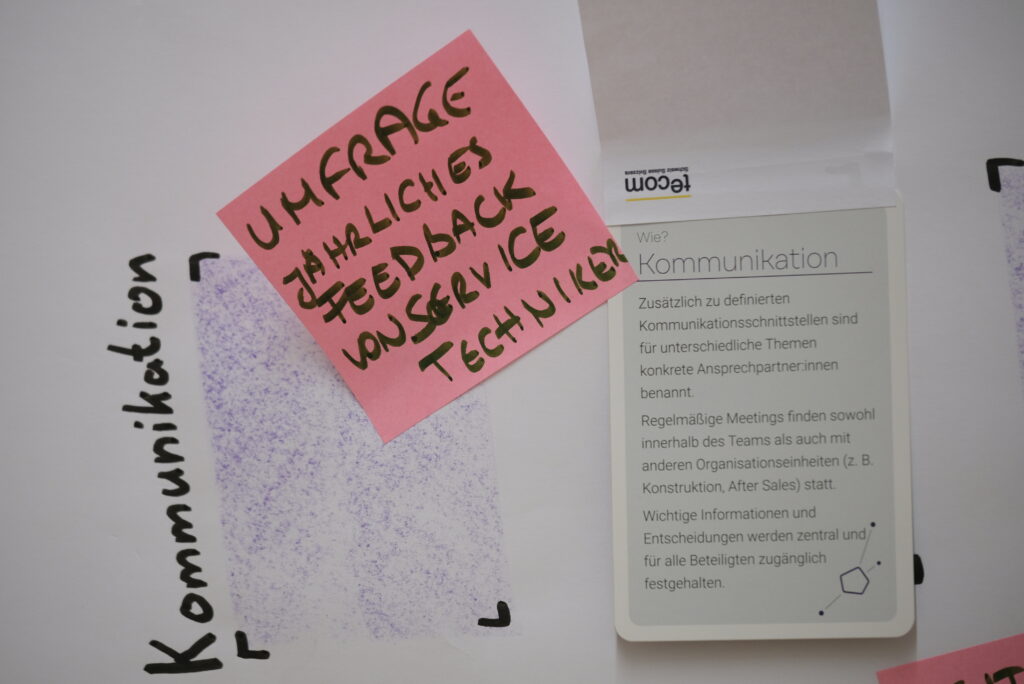 Kommunikation
UMFRAGE
JÄHRLICHES
FEEDBACK
VON SERVICE
TECHNIKER
tecom
Schweiz Suisse Svizzera
Wie?
Kommunikation
Zusätzlich zu definierten
Kommunikationsschnittstellen sind
für unterschiedliche Themen
konkrete Ansprechpartner:innen
benannt.
Regelmäßige Meetings finden sowohl
innerhalb des Teams als auch mit
anderen Organisationseinheiten (z. B.
Konstruktion, After Sales) statt.
Wichtige Informationen und
Entscheidungen werden zentral und
für alle Beteiligten zugänglich
festgehalten.